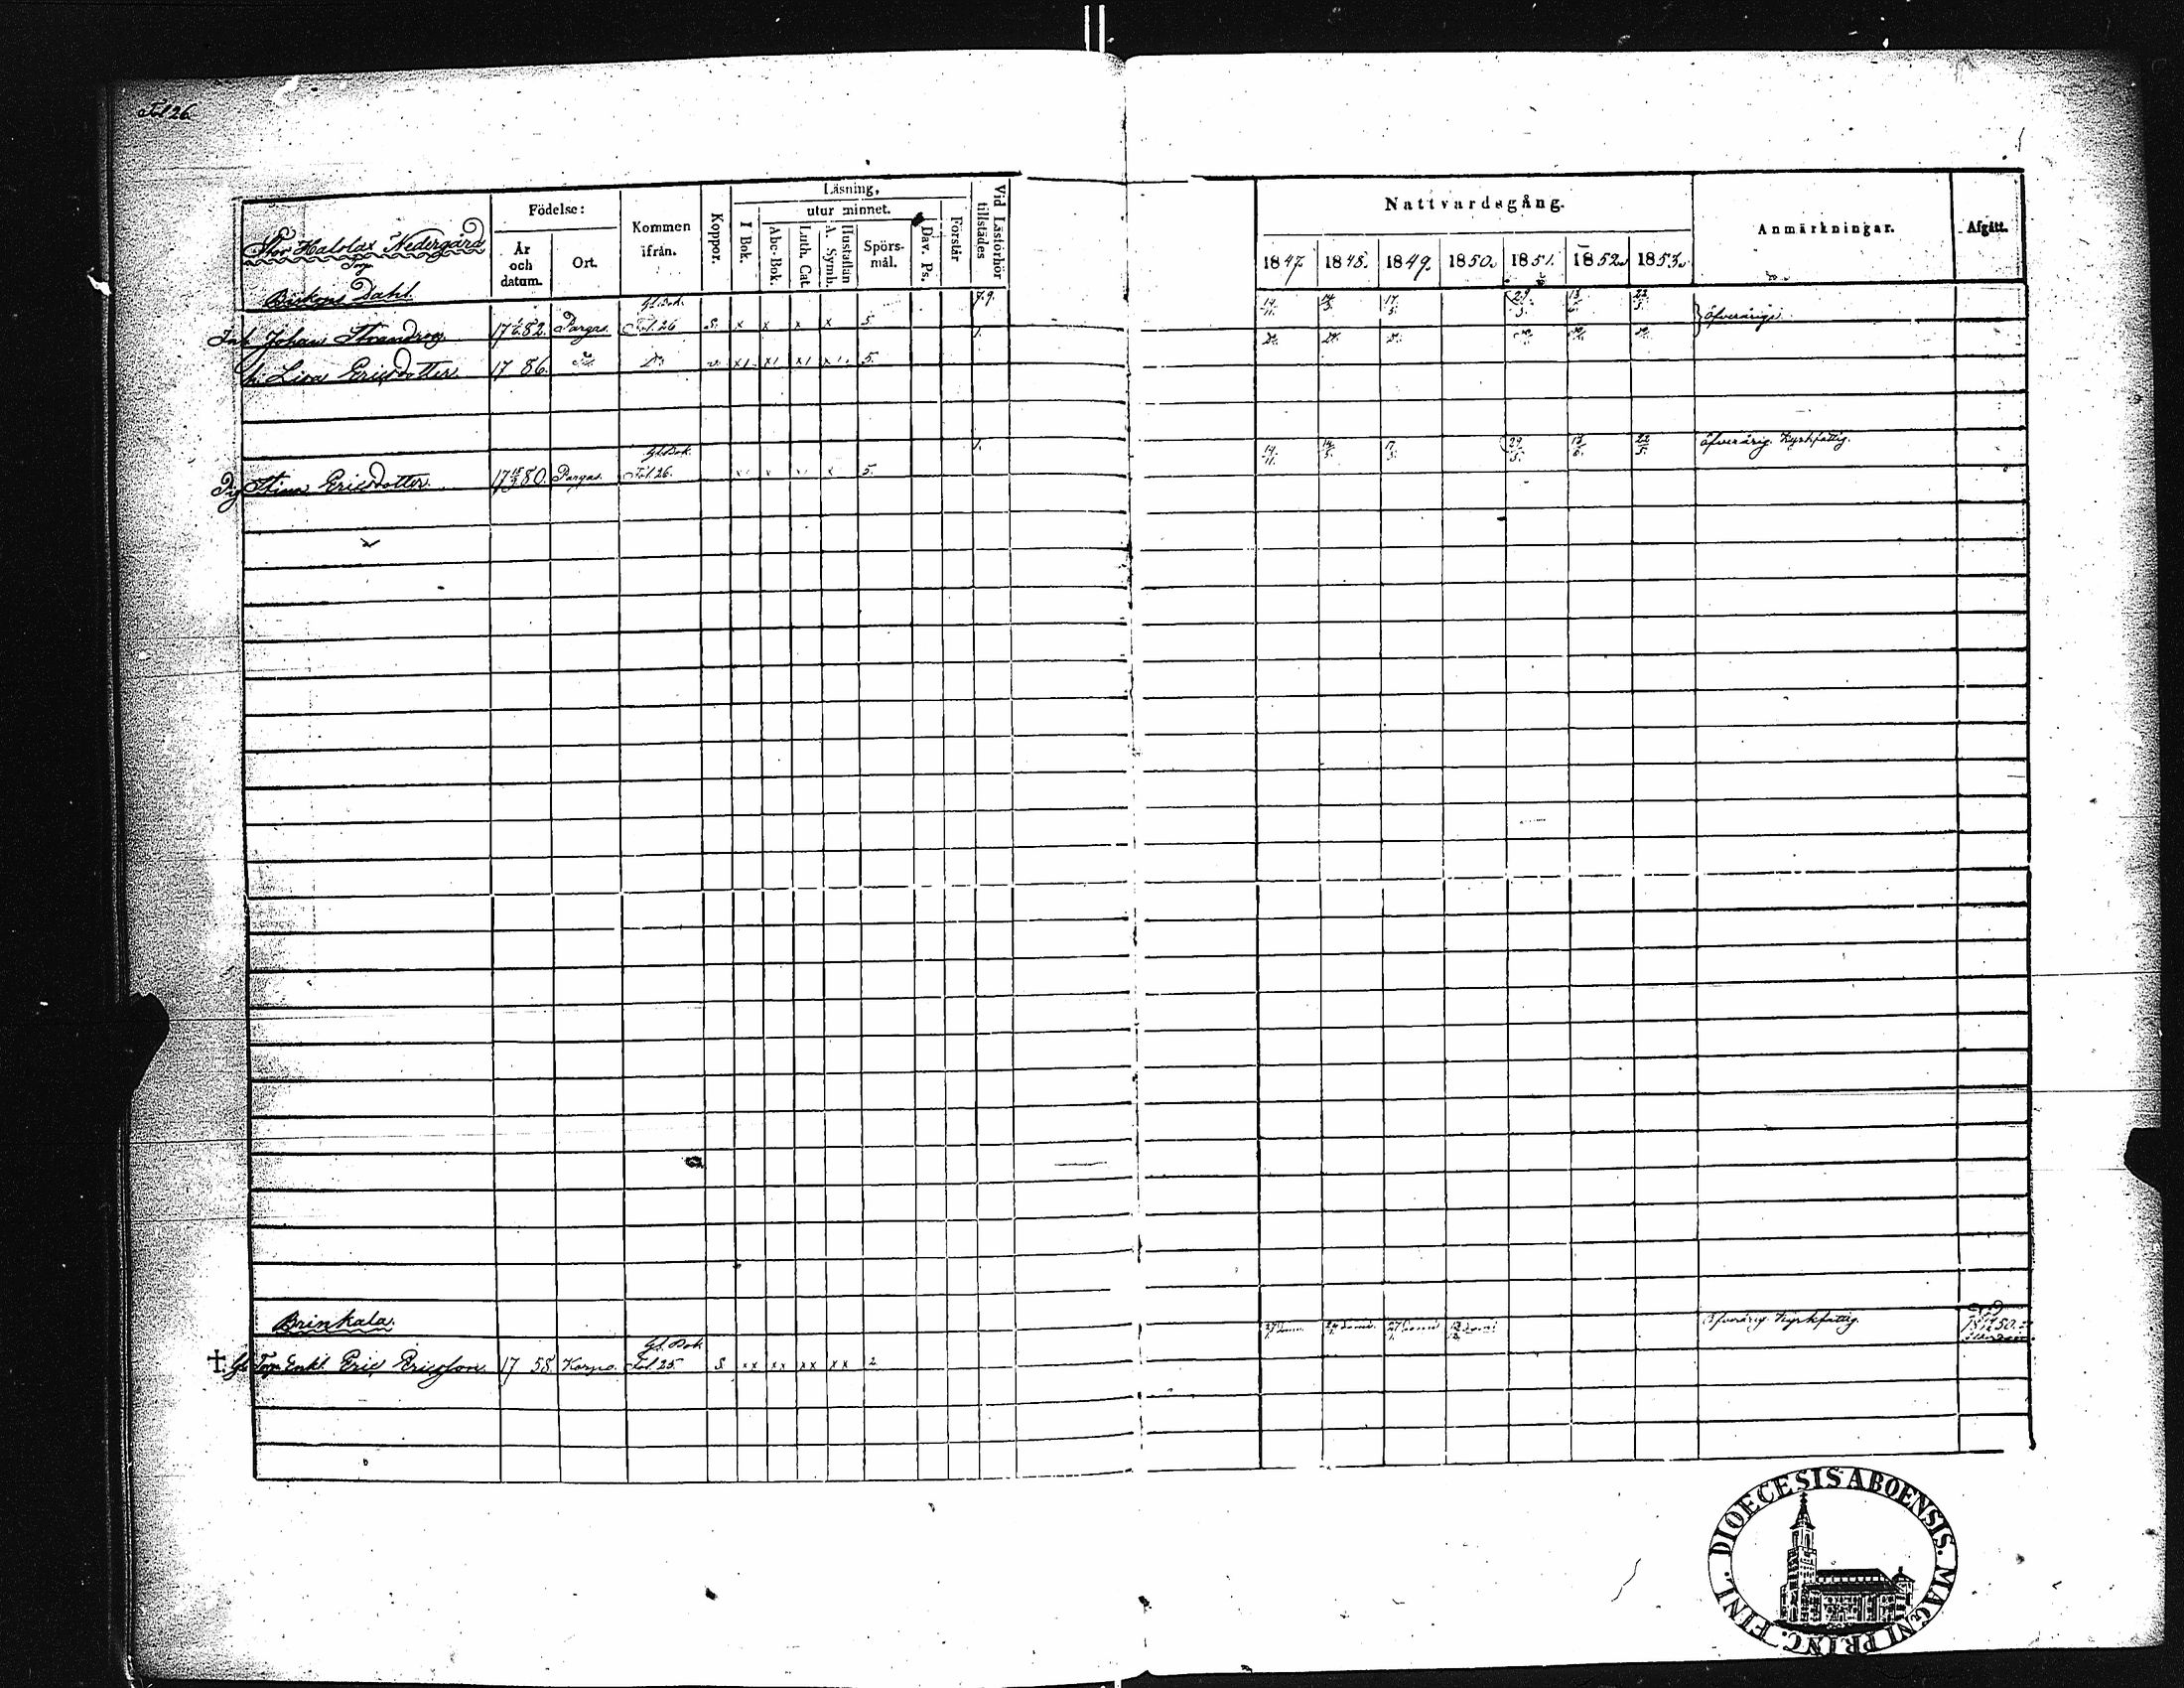 Fol 26
Stor Haholax Nedergård
Torp
Födelse: År och datum. Ort.
Kommen ifrån.
Koppor.
Läsning, utur minnet.
I Bok. Abc-Bok. Luth. Cat. Hustaflan A. Symb. Spörs-mål. Dav. Ps. Förstår
Vid Läsförhör tillstädes
Nattvardsgång.
1847. 1848. 1849. 1850. 1851. 1852. 1853.
Anmärkningar.
Afgått.
Dahl
Inh Johan 17 82. Pargas. Gl. Bok. Fol. 26 S. x x x x 5. 7.9. 14/11. 14/5. 17/5. 29/5. 13/6. 22/5. öfverårige
h. Lisa Ericsdotter 17 86. 5. 1.
Pig Stina Ericsdotter 17 80. Pargas. Gl. Bok. Fol. 26. x x x x 5. 1. 14/11. 14/5. 17/5. 29/5. 13/6. 22/5. öfverårig. Kyrkfattig.
Brinkala.
† Gl Torp. Enkl. Eric Ericsson 17 58. Korpo. Gl. Bok Fol. 25 S xx xx xx xx 2 Öfverårig. Kyrkfattig. 50.
DIOECESIS ABOENSIS. MAGNI PRINC. FINL.